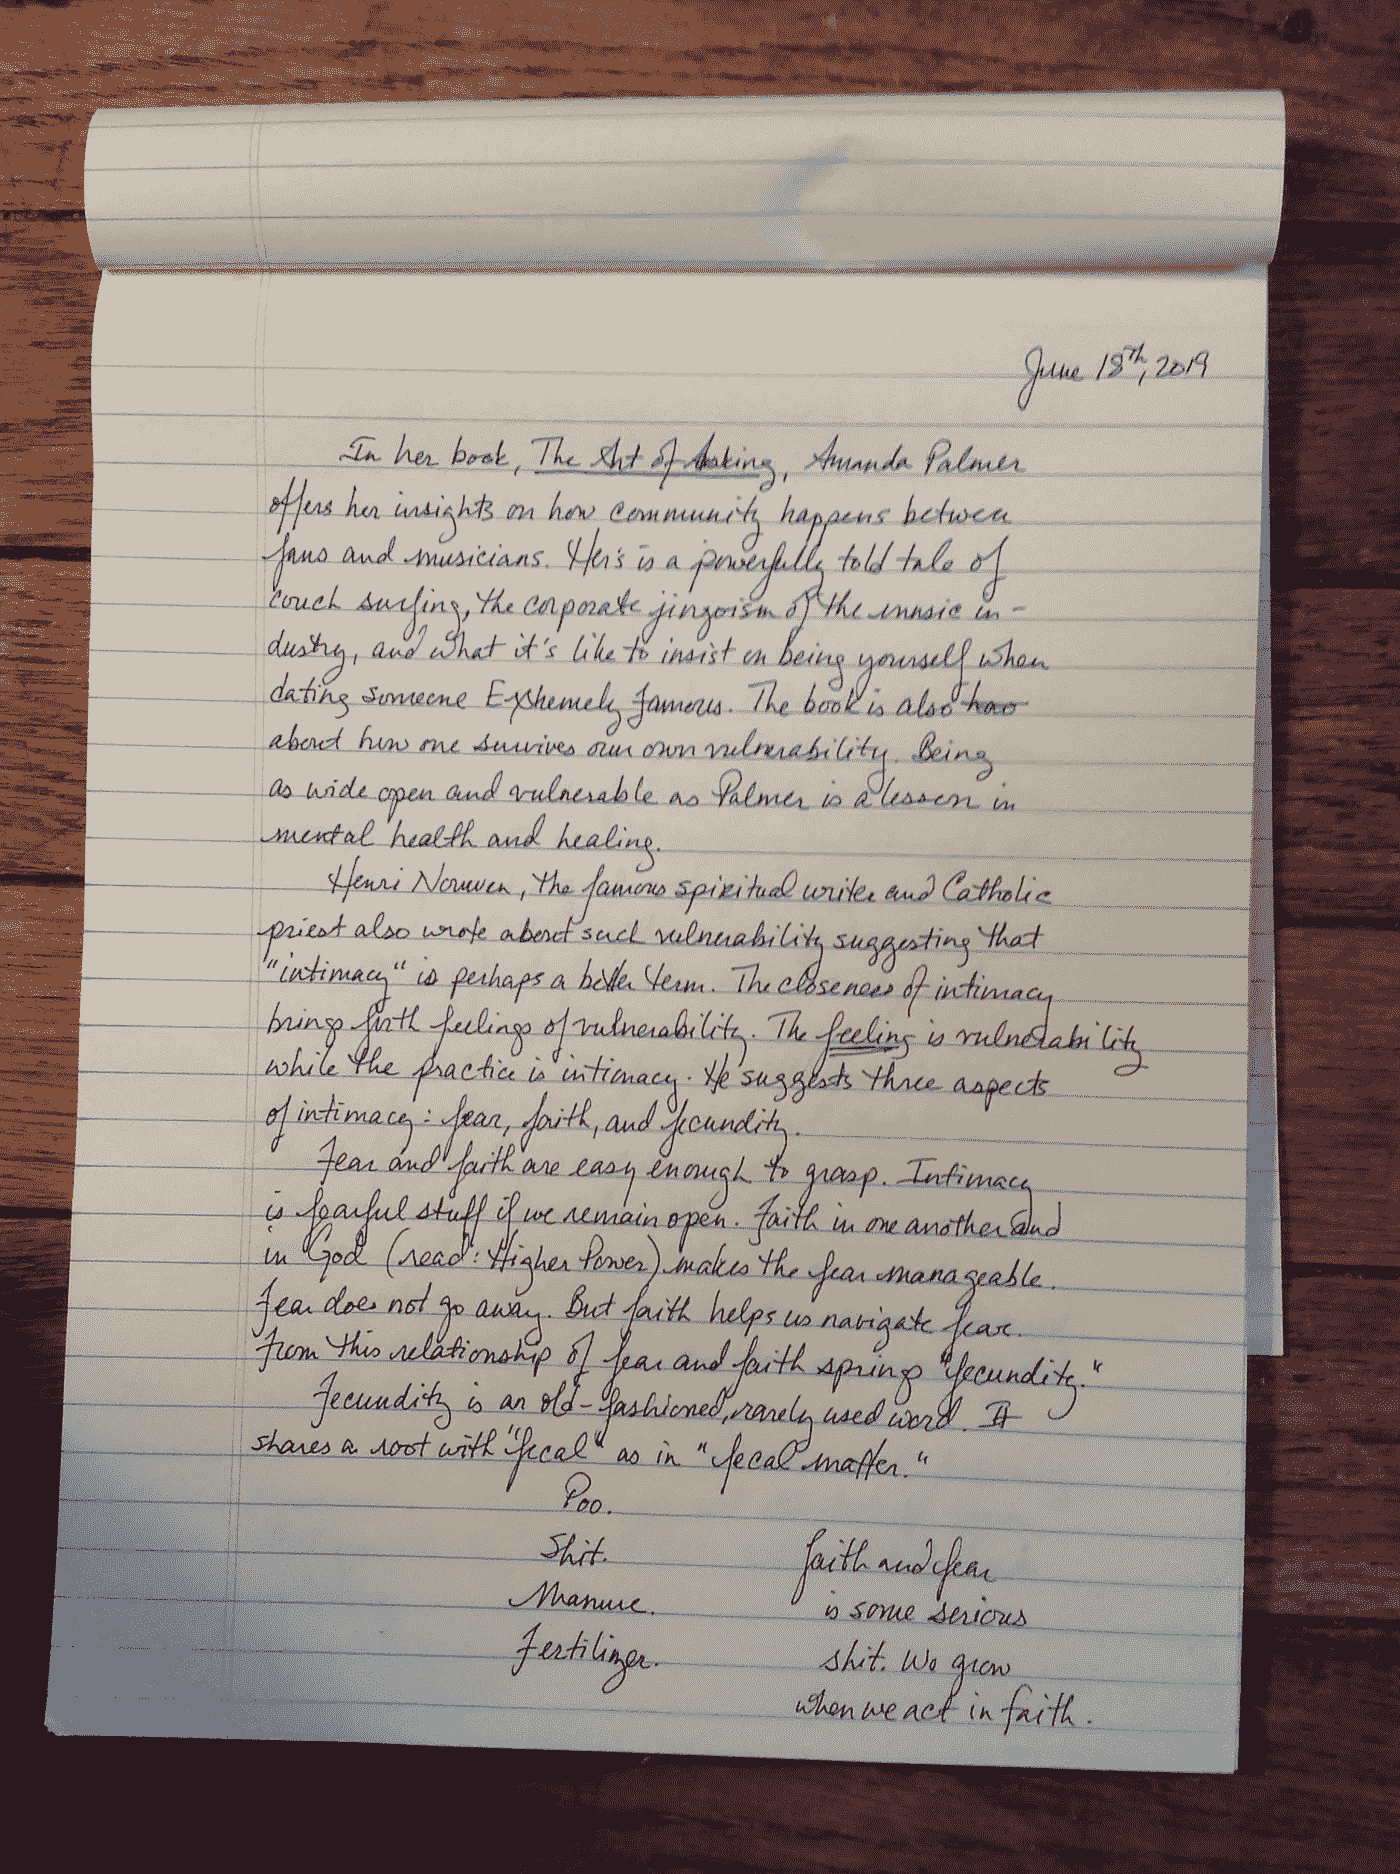 June 18th, 2019
In her book, The Art of Asking, Amanda Palmer
offers her insights on how community happens between
fans and musicians. Her's is a powerfully told tale of
couch surfing, the corporate jingoism of the music in-
dustry, and what it's like to insist on being yourself when
dating someone Extremely famous. The book is also how
about how one survives our own vulnerability. Being
as wide open and vulnerable as Palmer is a lesson in
mental health and healing.
Henri Nouwen, the famous spiritual writer and Catholic
priest also wrote about such vulnerability suggesting that
"intimacy" is perhaps a better term. The closeness of intimacy
brings forth feelings of vulnerability. The feeling is vulnerability
while the practice is intimacy. He suggests three aspects
of intimacy: fear, faith, and fecundity.
Fear and faith are easy enough to grasp. Intimacy
is fearful stuff if we remain open. Faith in one another and
in God (read: Higher Power) makes the fear manageable.
Fear does not go away. But faith helps us navigate fear.
From this relationship of fear and faith springs "fecundity."
Fecundity is an old-fashioned, rarely used word. It
shares a root with "fecal" as in "fecal matter."
Poo.
Shit.
Manure.
Fertilizer.
Faith and fear
is some serious
shit. We grow
when we act in faith.